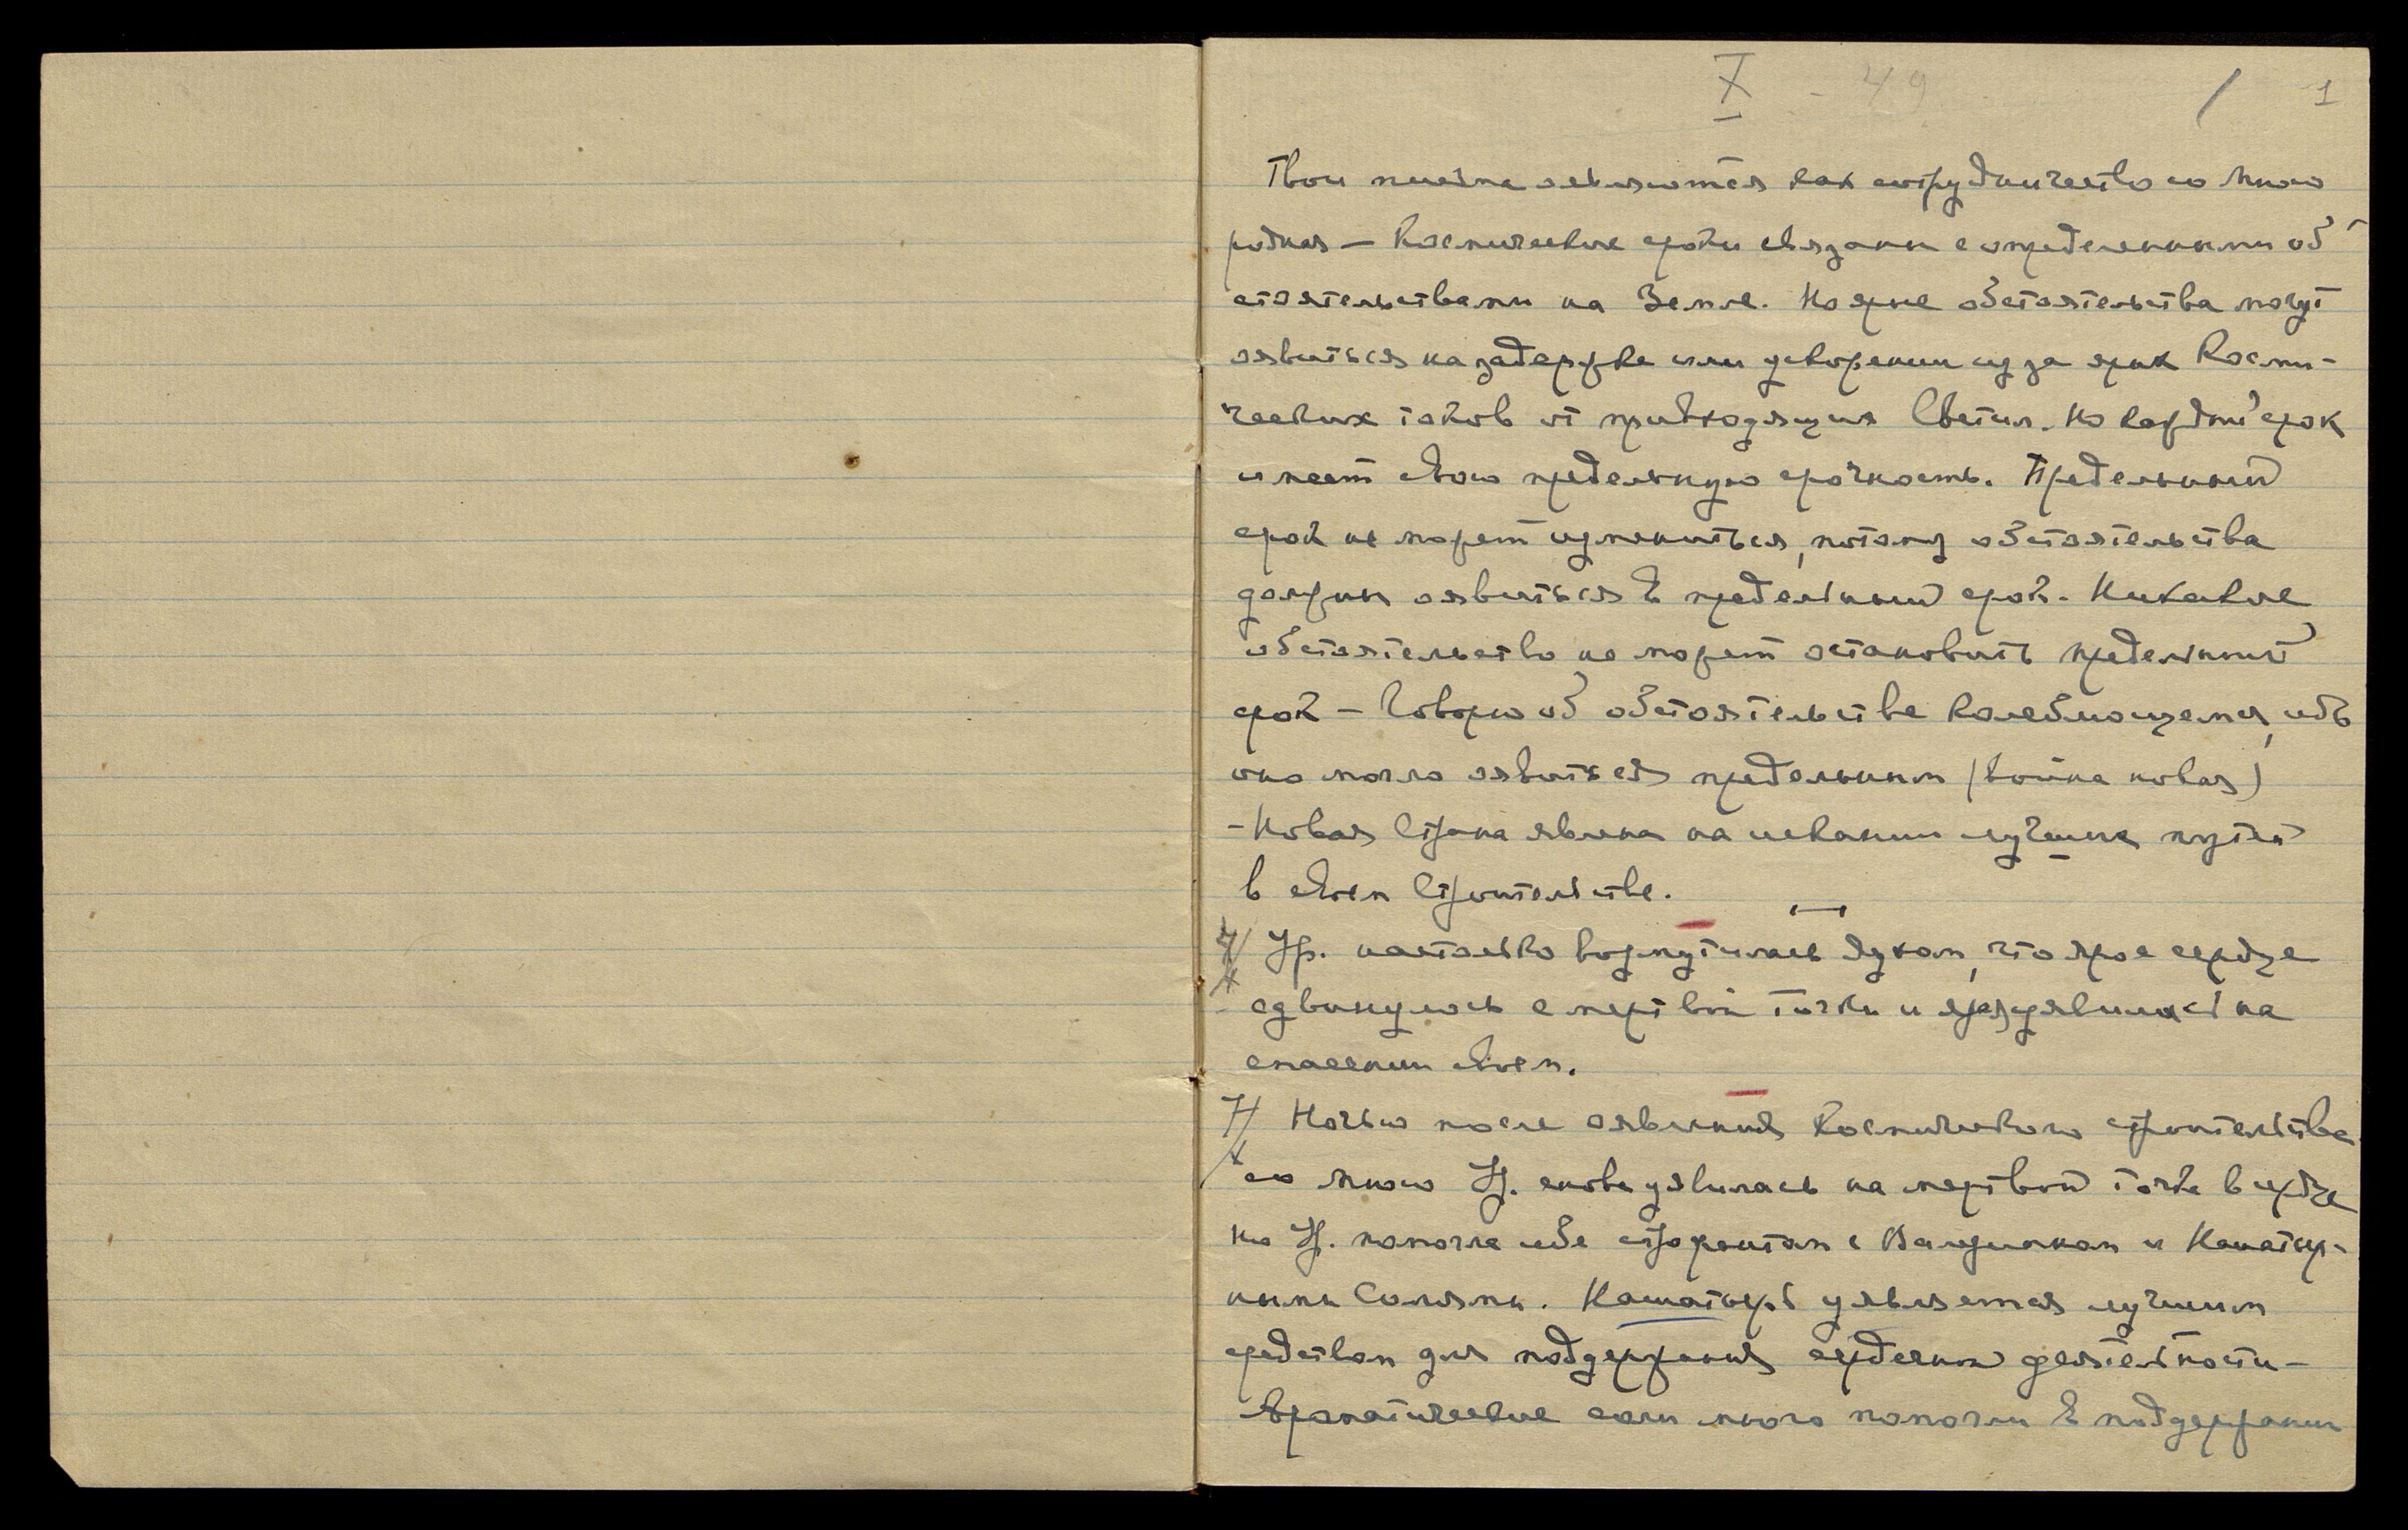 X - 49 / 1
Твои письма оявляются как сотрудничество со Мною
родная — Космические сроки связаны с определенными об-
стоятельствами на Земле. Но ярые обстоятельства могут
оявиться на задержке или ускорении из за ярых Косми-
ческих токов от привходящих Светил. Но каждый срок
имеет свою предельную срочность. Предельный
срок не может измениться, потому обстоятельства
должны оявиться в предельный срок. Никакое
обстоятельство не может остановить предельный
срок — Говорю об обстоятельстве колеблющемся, ибо
оно могло оявиться предельным (война новая)
- Новая Страна явлена на искании лучших путей
в своем Строительстве.
Ур. настолько возмутилась духом, что ярое сердце
сдвинулось с мертвой точки и яро уявилось на
спасении своем.
Ночью после оявления Космического строительства
со Мною Ур. снова уявилась на мертвой точке в сердце
но Ур. помогла себе строфантом с Валидианом и Нашатыр-
ными Солями. Нашатырь уявляется лучшим
средством для поддержания сердечной деятельности -
Ароматические соли много помогли в поддержании